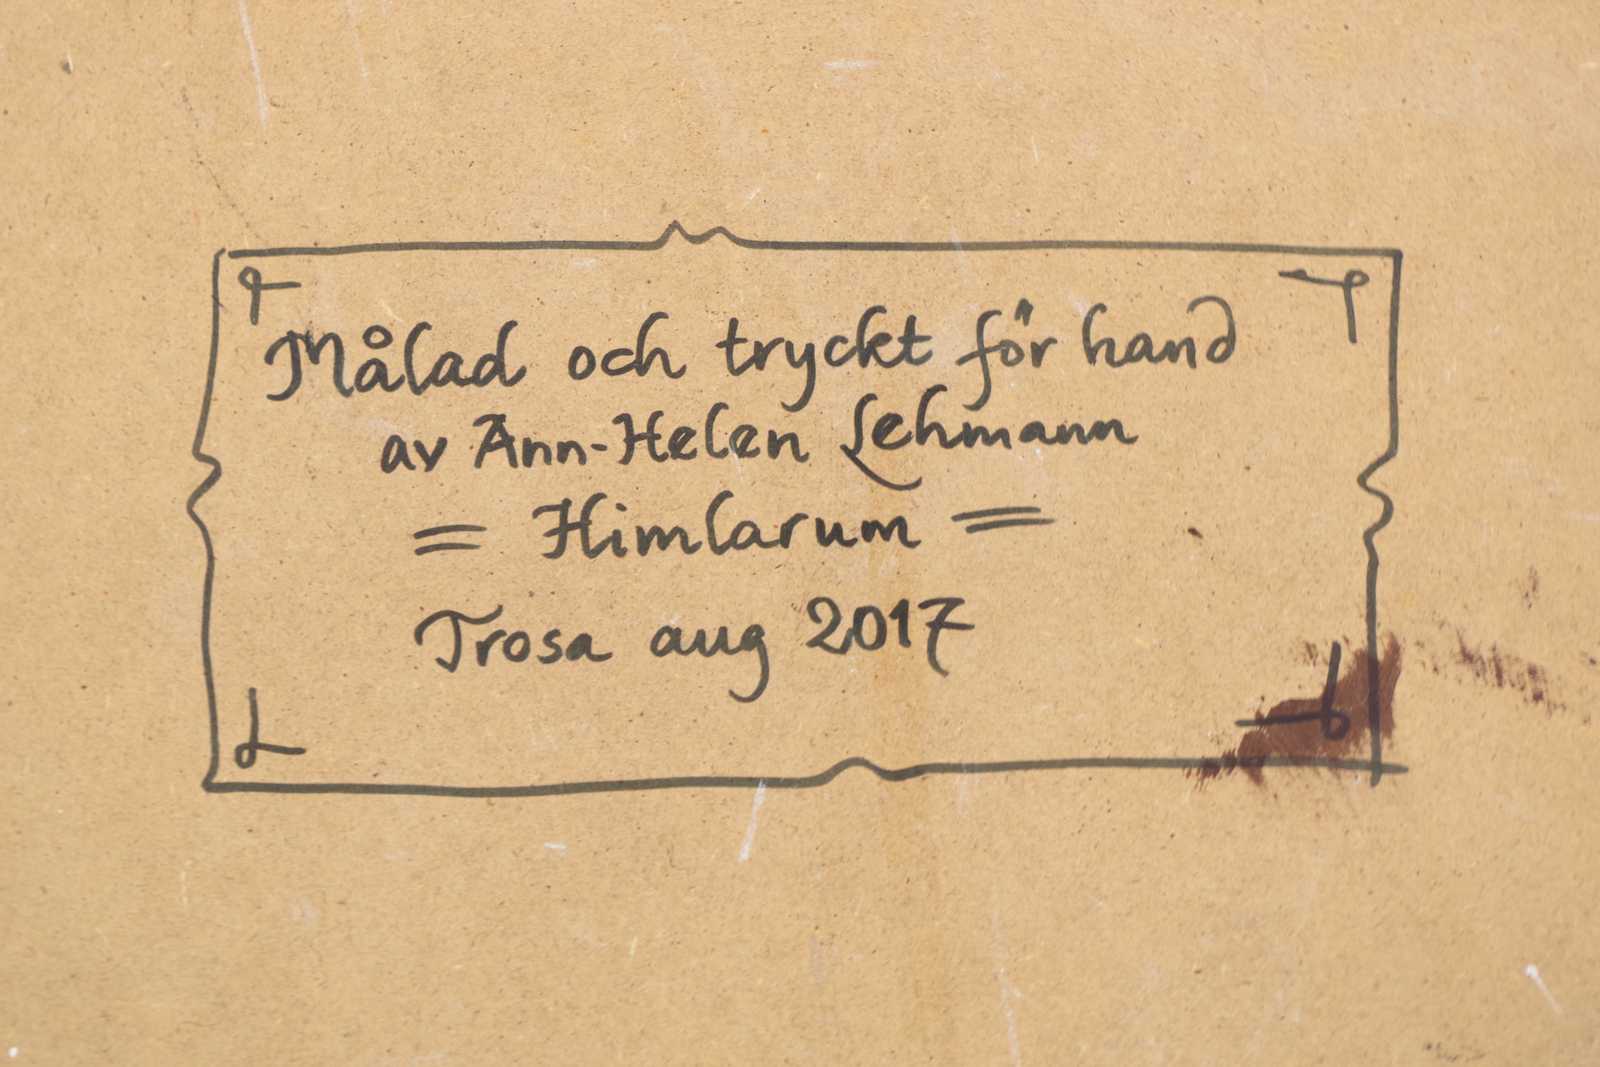 Målad och tryckt för hand
av Ann-Helen Lehmann
= Himlarum =
Trosa aug 2017